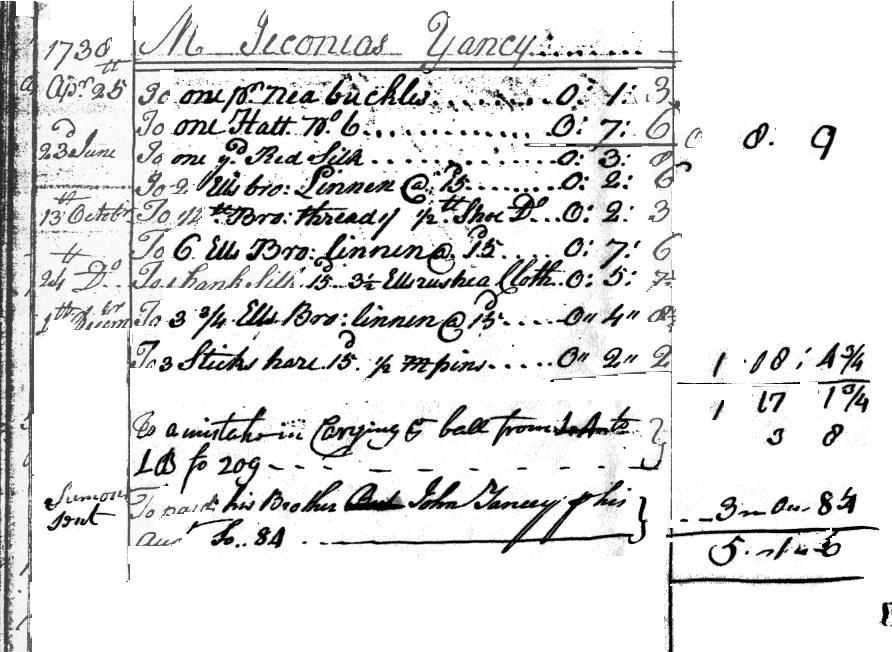 1738 M Jeconias Yancy
Apr 25th To one pr nea buckles 0: 1: 3
To one Hatt No 6 0: 7: 6 0 8. 9
23d June To one yd Red Silk 0: 3: 0
To 2 Ells bro: Linnen @ 15d 0: 2: 6
13th Octobr To 1/2 tt Bro: thread & 1/2 tt Shoe Do 0: 2: 3
To 6 Ells Bro: linnen @ 15d 0: 7: 6
24th Do To 1 hank Silk 15d 3 1/2 Ells rushea Cloth 0: 5: 7
1th Decemr To 3 3/4 Ells Bro: linnen @ 15d 0" 4" 8
To 3 Sticks hare 15d 1/2 m pins 0" 2" 2 1 18: 4 3/4
1 17 1 3/4
To a mistake in Carying ball from 3 8
LB fo 209
Sumons sent To paid his Brother John Yancey his 3 " 0 " 8 1/4
fo.. 84 5 " 1 " 6